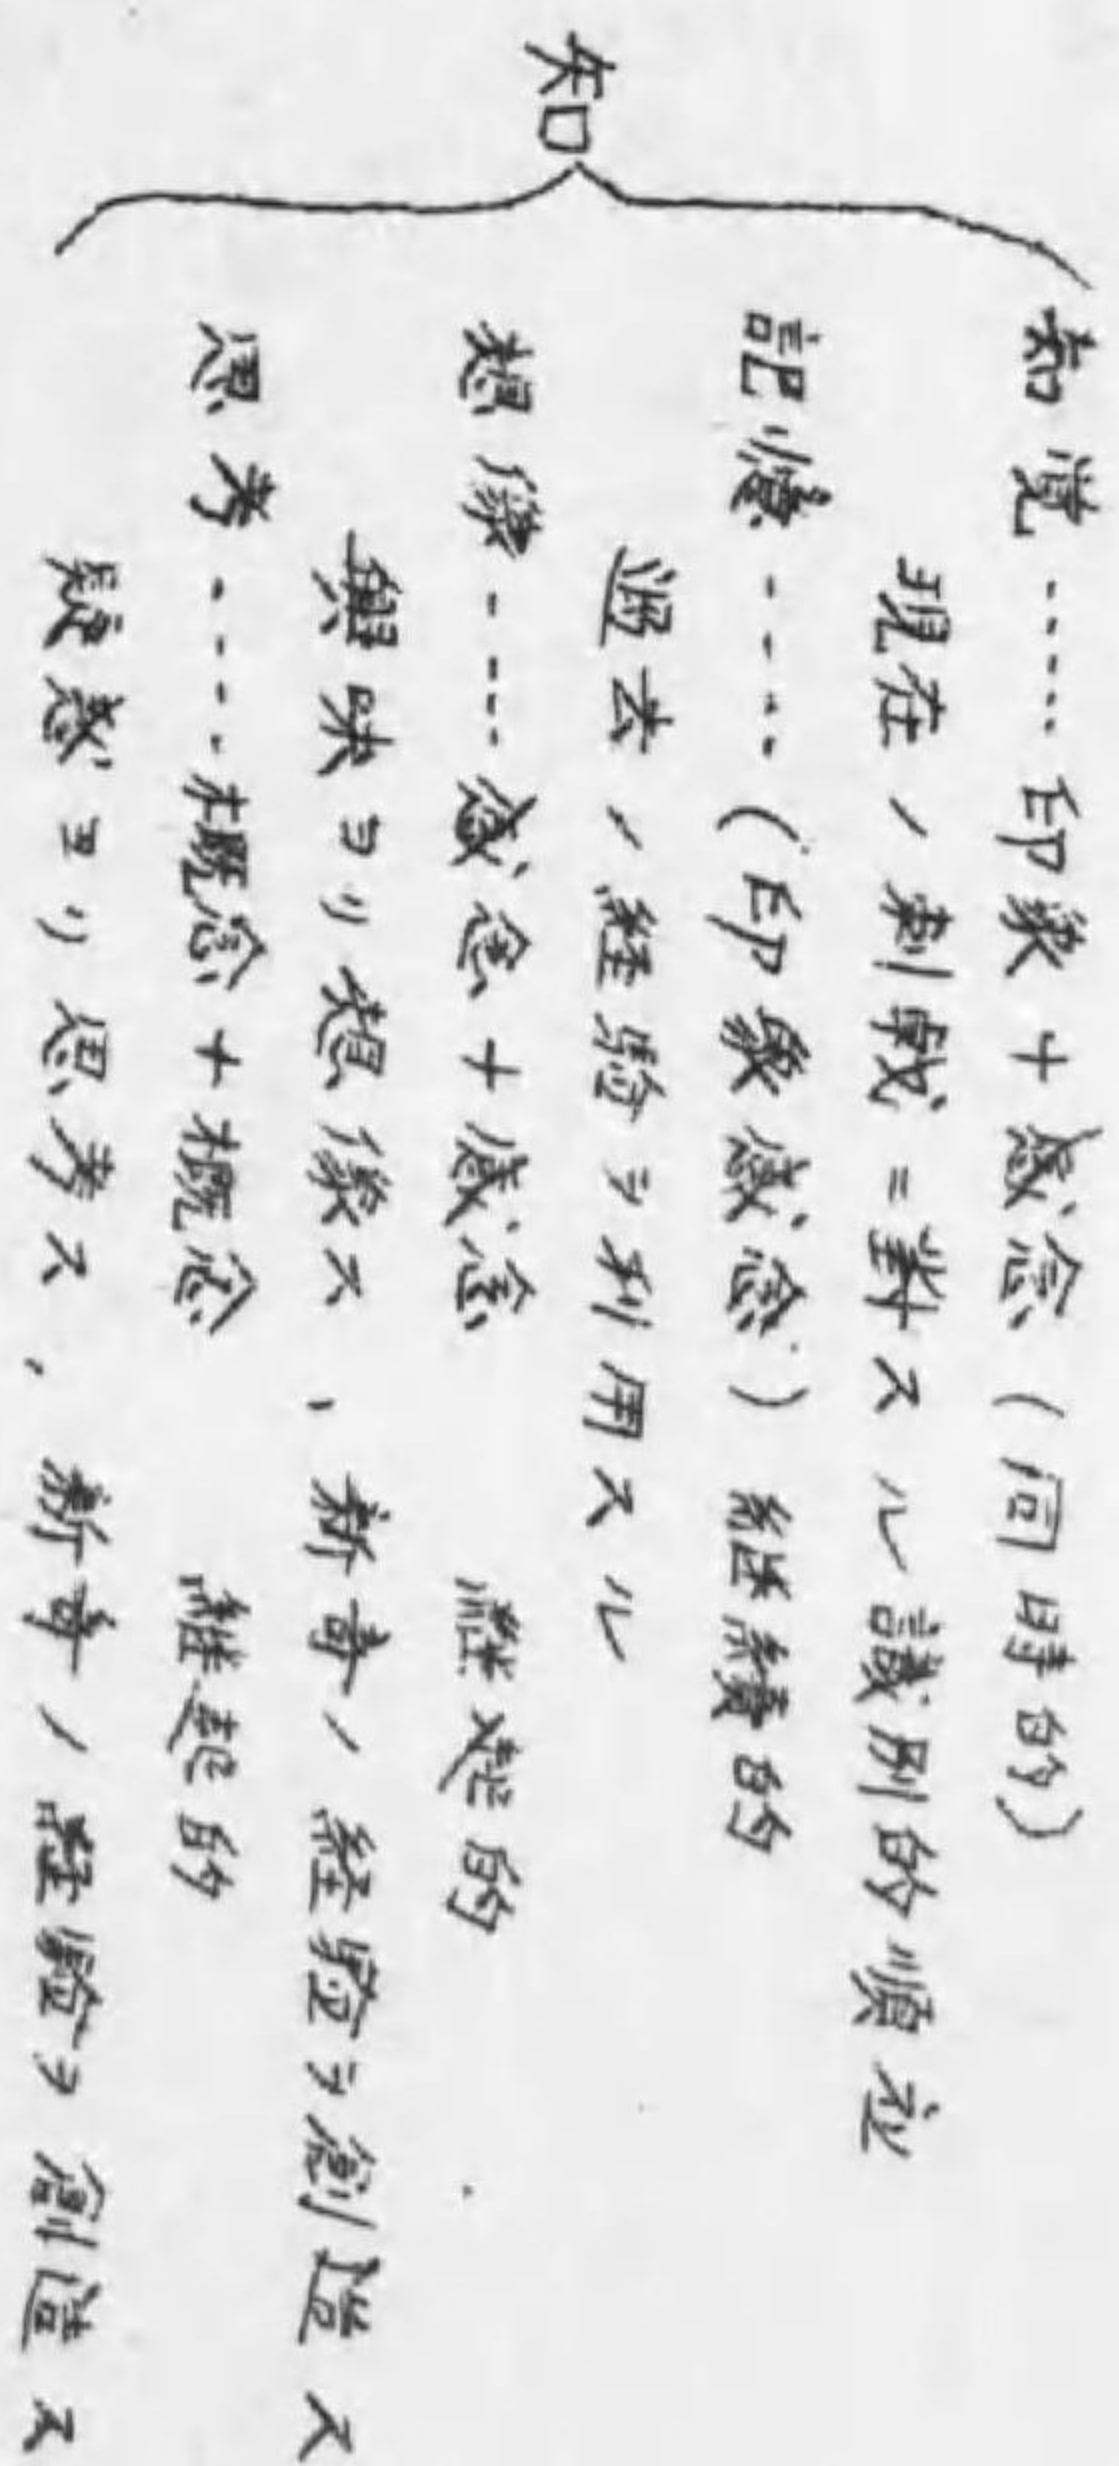 知
知覚……印象＋感念（同時的）
現在ノ刺戟ニ對スル識別的順応
記憶……（印象感念）継続的
過去ノ経験ヲ利用スル
想像……感念＋感念　継起的
興味ヨリ想像ス、新奇ノ経験ヲ創造ス
思考……概念＋概念　継起的
疑惑ヨリ思考ス、新奇ノ経験ヲ創造ス